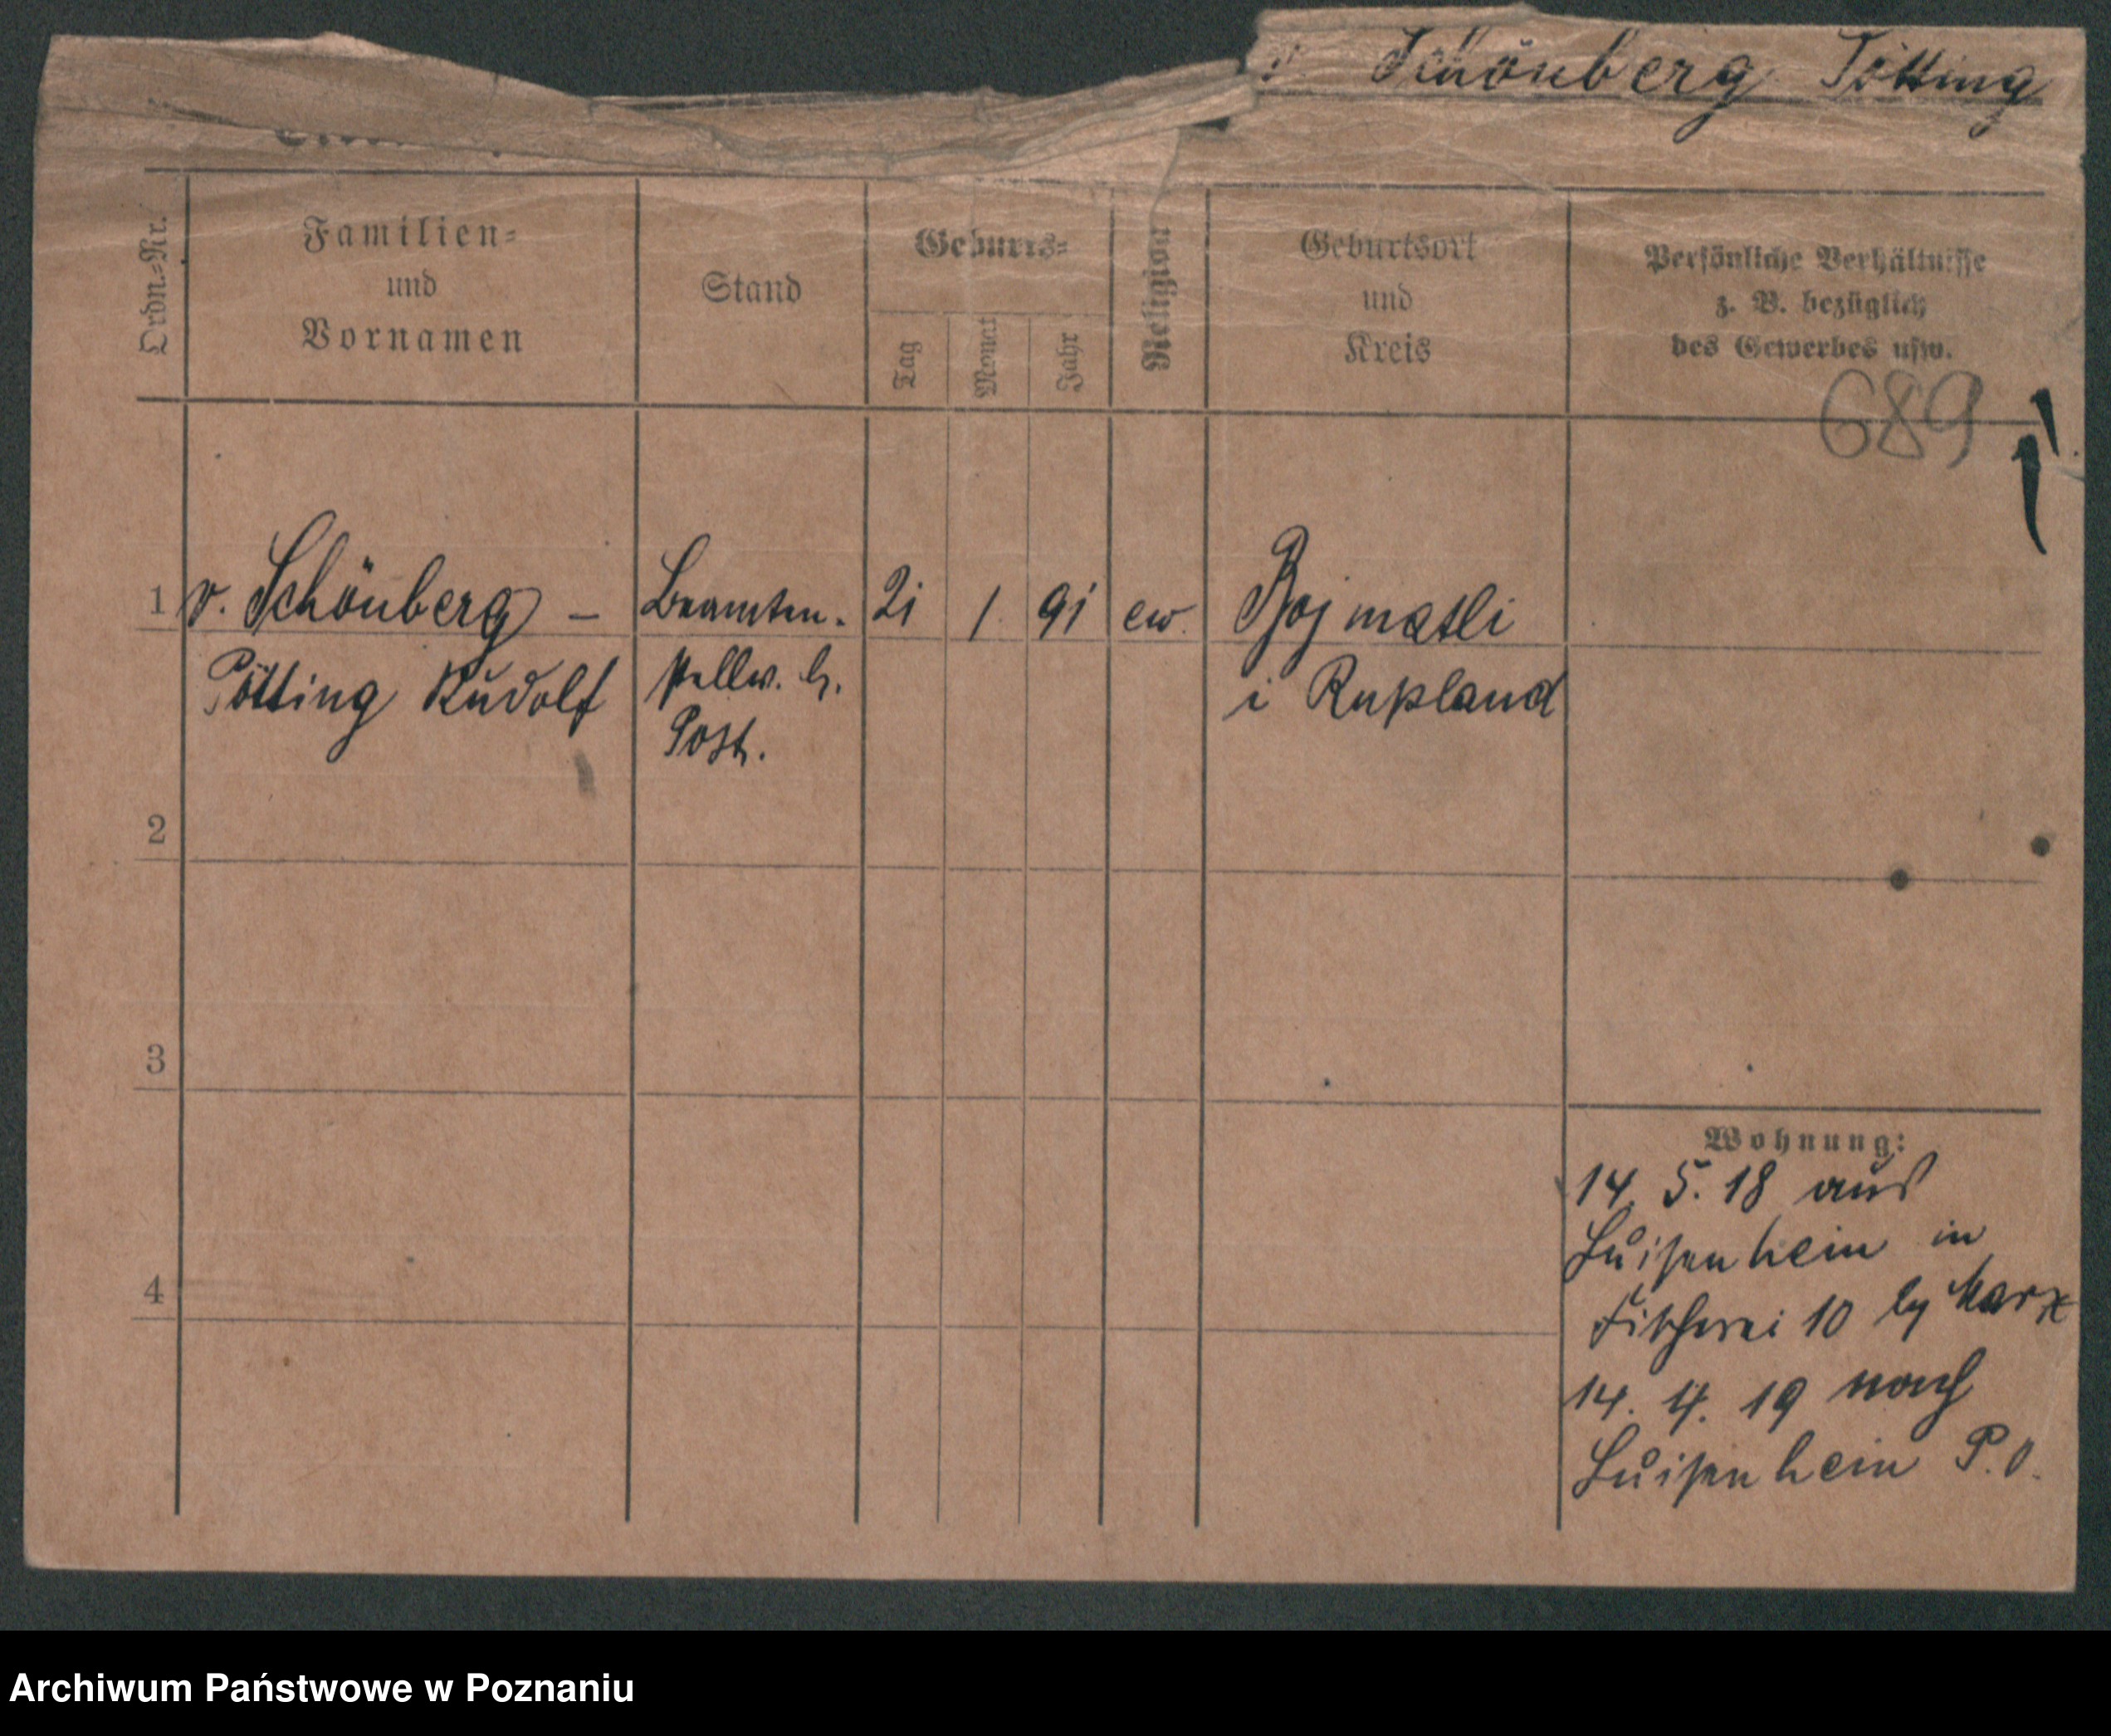 v. Schönberg Pötting
Ordn.-Nr.
Familien-
und
Vornamen
Stand
Geburts-
Tag
Monat
Jahr
Religion
Geburtsort
und
Kreis
Persönliche Verhältnisse
z. B. bezüglich
des Gewerbes usw.
689
1 v. Schönberg – Beamten- 21 1. 91 ew.
Pötting Rudolf stellv. b. i Rußland
Post.
2
3
4
Wohnung:
14. 5. 18 aus
Luisenhein in
Fischerei 10 by Marx
14. 4. 19 nach
Luisenhein P. O.
Archiwum Państwowe w Poznaniu